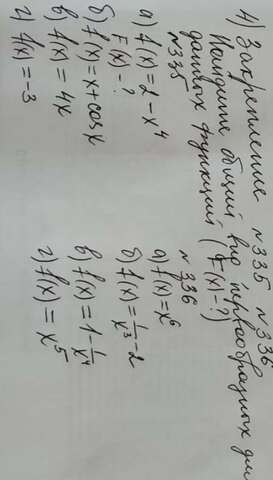 4) Закрепление №335 №336
Найдите общий вид первообразных для
данных функций (F(x)-?)
№335
а) f(x) = 2 - x⁴
F(x) - ?
б) f(x) = x + cos x
в) f(x) = 4x
г) f(x) = -3
№336
а) f(x) = x⁶
б) f(x) = 1/x³ - 2
в) f(x) = 1 - 1/x⁴
г) f(x) = x⁵